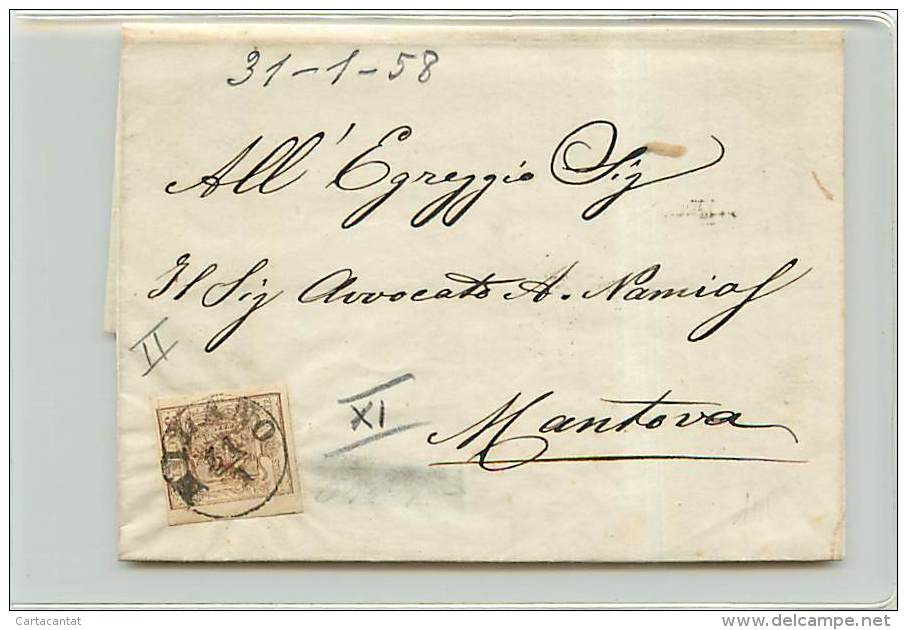 31-1-58
All' Egreggio Sig
Il Sig Avvocato A. Namias
II
XI
Mantova
MILANO
31
1
Cartacantat
delcampe.net